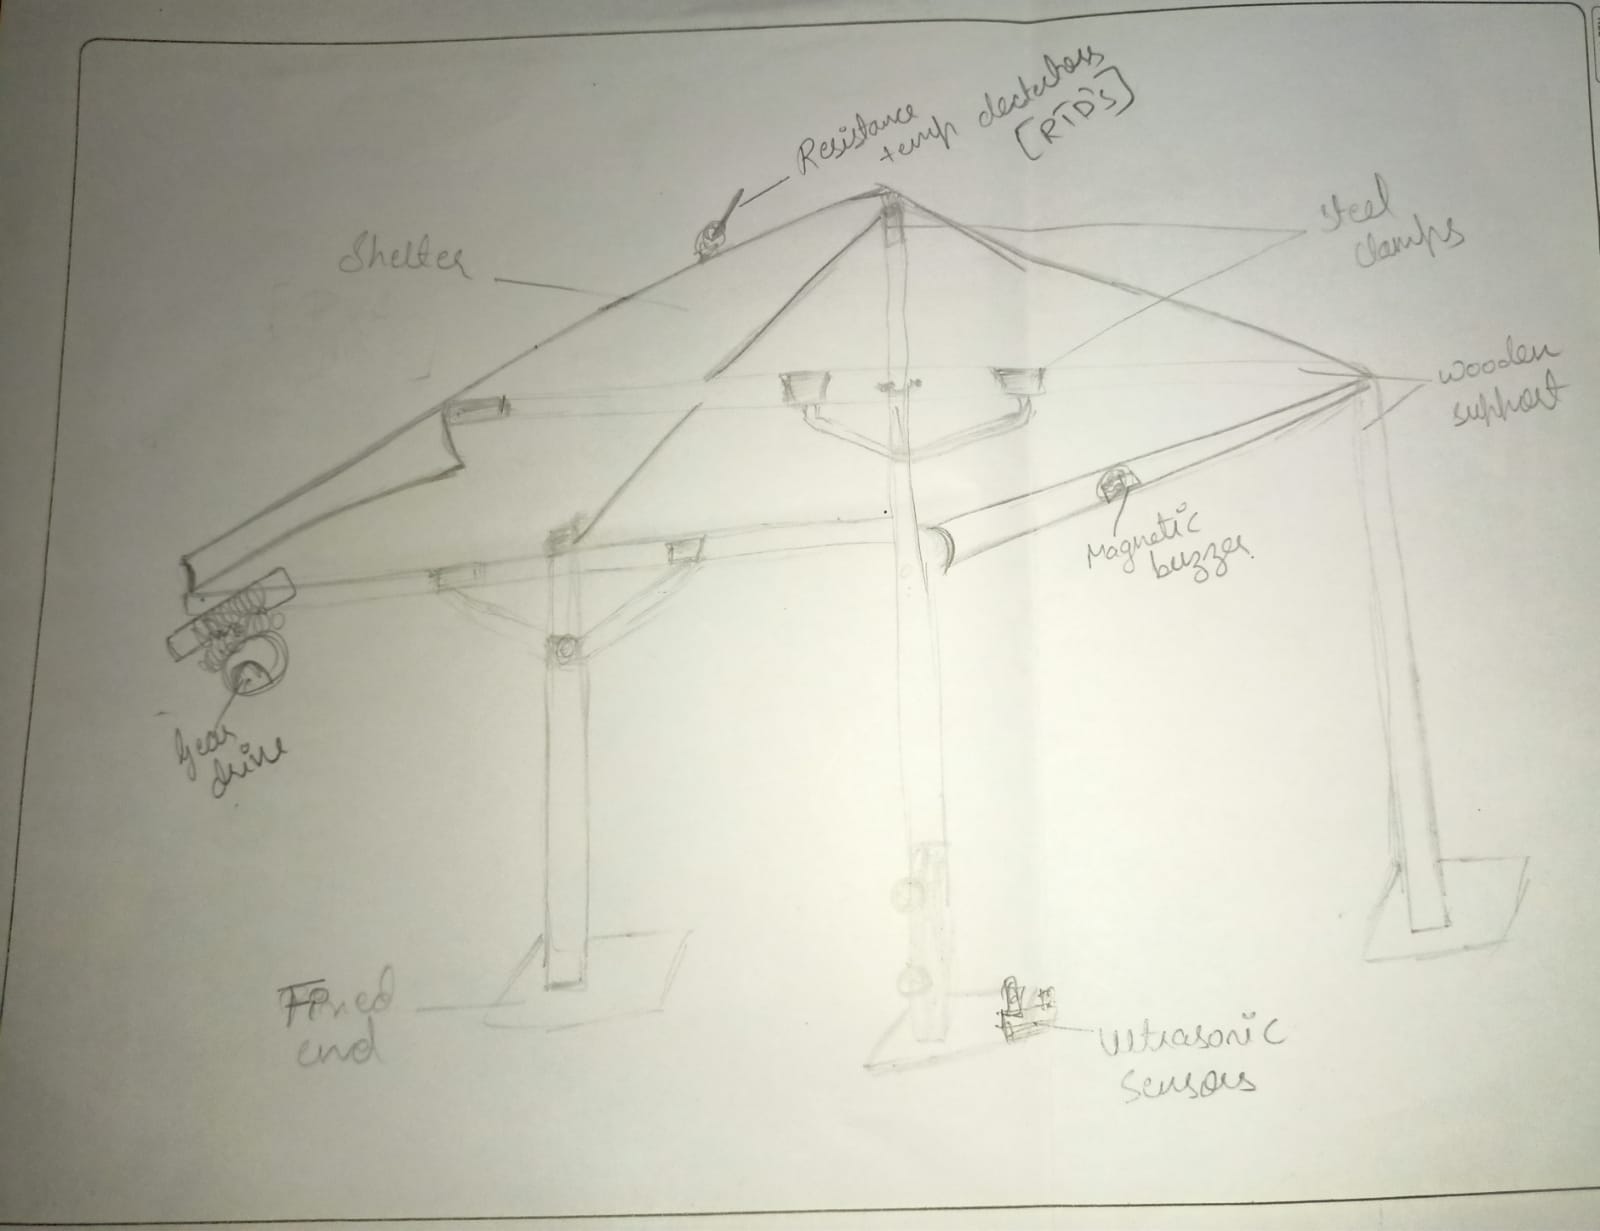 Resistance
temp dectectors
[RTD's]
Shelter
Steel
clamps
Wooden
support
Magnetic
buzzer
Gear
drive
Fixed
end
Ultrasonic
Sensors